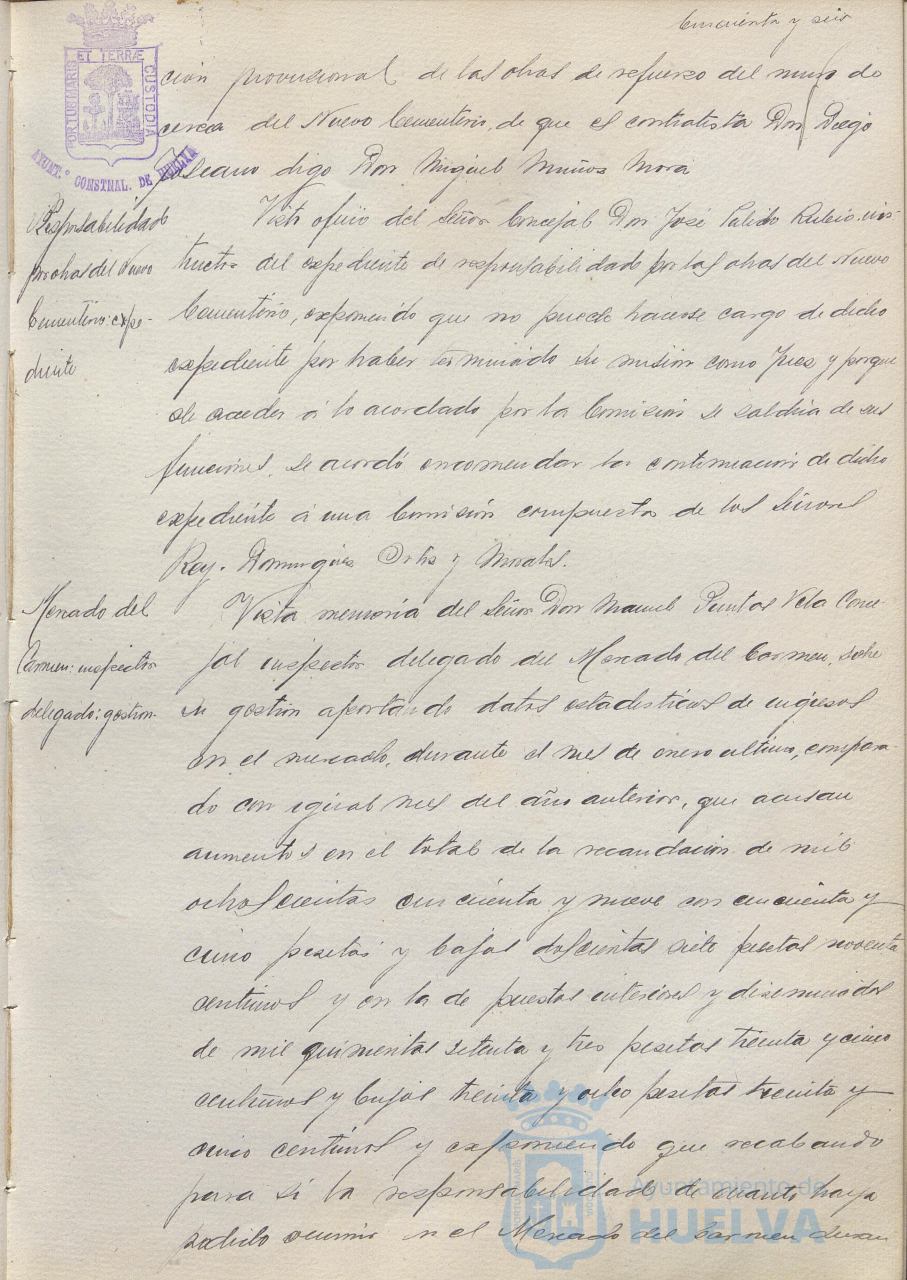 Cincuenta y seis
PORTUS MARIS ET TERRÆ CUSTODIA
AYUNT.º CONSTNAL. DE HUELVA
ción provisional de las obras de refuerzo del muro de
cerca del Nuevo Cementerio, de que es contratista Don Diego
digo Don Miguel Muñoz Mora
Responsabilidad
por obras del Nuevo
Cementerio: expe-
diente
Visto oficio del Señor Concejal Don José Pulido Rubio, ins-
tructor del expediente de responsabilidad por las obras del Nuevo
Cementerio, exponiendo que no puede hacerse cargo de dicho
expediente por haber terminado su misión como Juez y porque
de acceder á lo acordado por la Comisión se saldria de sus
funciones, se acordó encomendar la continuación de dicho
expediente á una Comisión compuesta de los Señores
Rey, Dominguez Ortiz y Morales.
Mercado del
Carmen: inspector
delegado: gestion.
Vista memoria del Señor Don Manuel Puntas Vela Conce-
jal inspector delegado del Mercado del Carmen, sobre
su gestion aportando datos estadisticos de ingresos
en el mercado, durante el mes de enero ultimo, compara-
do con igual mes del año anterior, que acusan
aumentos en el total de la recaudación de mil
ochoscientas cincuenta y nueve con cincuenta y
cinco pesetas y bajas doscientas siete pesetas noventa
centimos y en la de puestos interiores y diseminados
de mil quinientas setenta y tres pesetas treinta y cinco
centimos y bajas treinta y ocho pesetas treinta y
cinco centimos y exponiendo que recabando
para sí la responsabilidad de cuanto haya
podido ocurrir en el Mercado del Carmen duran
Ayuntamiento de
HUELVA